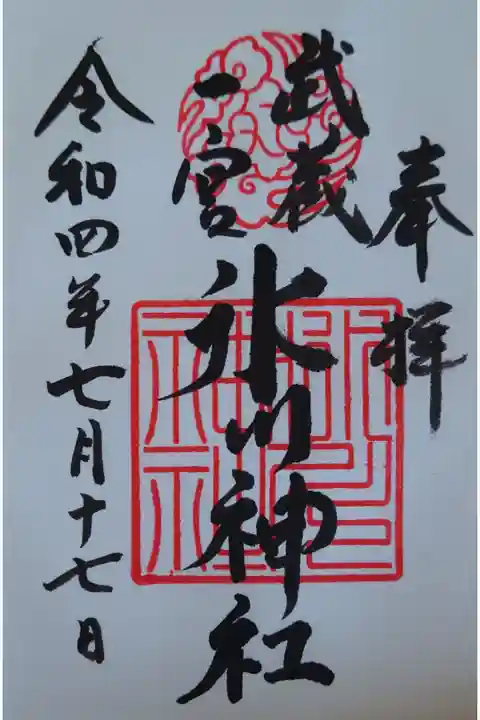 奉拝
武蔵
一宮
氷川神社
令和四年七月十七日
氷川
神社